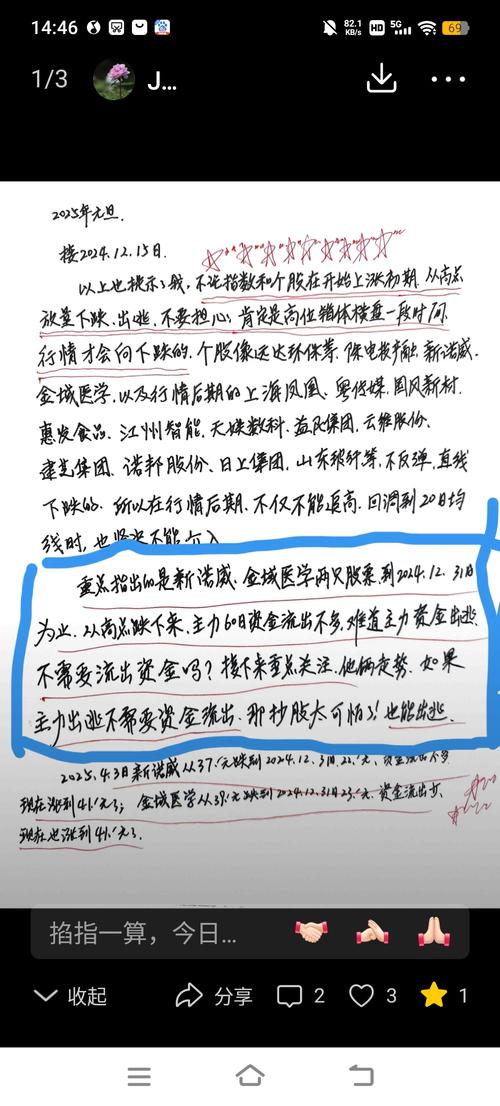 14:46
82.1 KB/s
HD
5G
69
1/3
J...
2025年元旦.
接2024.12.15日.
以上也提示了我,不论指数和个股在开始上涨初期.从高点
放量下跌.出逃.不要担心:肯定是高位箱体横盘一段时间.
行情才会向下跌的.个股像远达环保等.保电投产融.新诺威.
金域医学.以及行情后期的上海凤凰、粤传媒.国风新材.
惠发食品.江州智能.天娱数科.益民集团.云维股份、
建艺集团、诺邦股份、日上集团,山东玻纤等.不反弹.直线
下跌的.所以在行情后期.不仅不能追高.回调到20日均
线时,也坚决不能介入
重点指出的是新诺威、金域医学两只股票.到2024.12.31日
为止.从高点跌下来.主力60日资金流出不多.难道主力资金出逃
不需要流出资金吗?接下来重点关注.他俩走势.如果
主力出逃不需要资金流出.那抄股太可怕了!也能出逃.
2025.4.3日新诺威从37.元跌到2024.12.31日.21.元、资金流出不多
现在涨到41.元了;金域医学从39.元跌到2024.12.31日25.元.资金流出少、
现在也涨到41.元了.
掐指一算，今日...
收起
分享
2
3
1